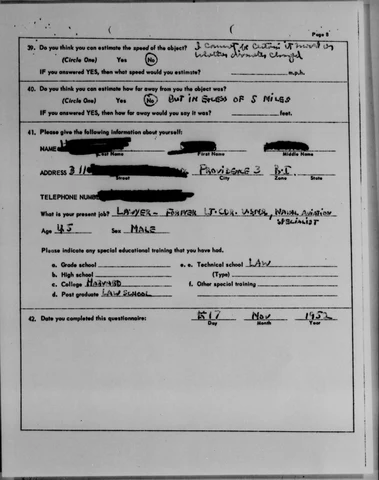 Page 5
39. Do you think you can estimate the speed of the object?
(Circle One) Yes No
I cannot be certain it
whether
IF you answered YES, then what speed would you estimate? m.p.h.
40. Do you think you can estimate how far away from you the object was?
(Circle One) Yes No BUT IN EXCESS OF 5 MILES
IF you answered YES, then how far away would you say it was? feet.
41. Please give the following information about yourself:
NAME
Last Name First Name Middle Name
ADDRESS 311 PROVIDENCE 3 R.I
Street City Zone State
TELEPHONE NUMBER
What is your present job? LAWYER - FORMER LT. CDR. USNR, NAVAL AVIATION
SPECIALIST
Age 45 Sex MALE
Please indicate any special educational training that you have had.
a. Grade school e. Technical school LAW
b. High school (Type)
c. College HARVARD f. Other special training
d. Post graduate LAW SCHOOL
42. Date you completed this questionnaire: 17 Nov 1952
Day Month Year